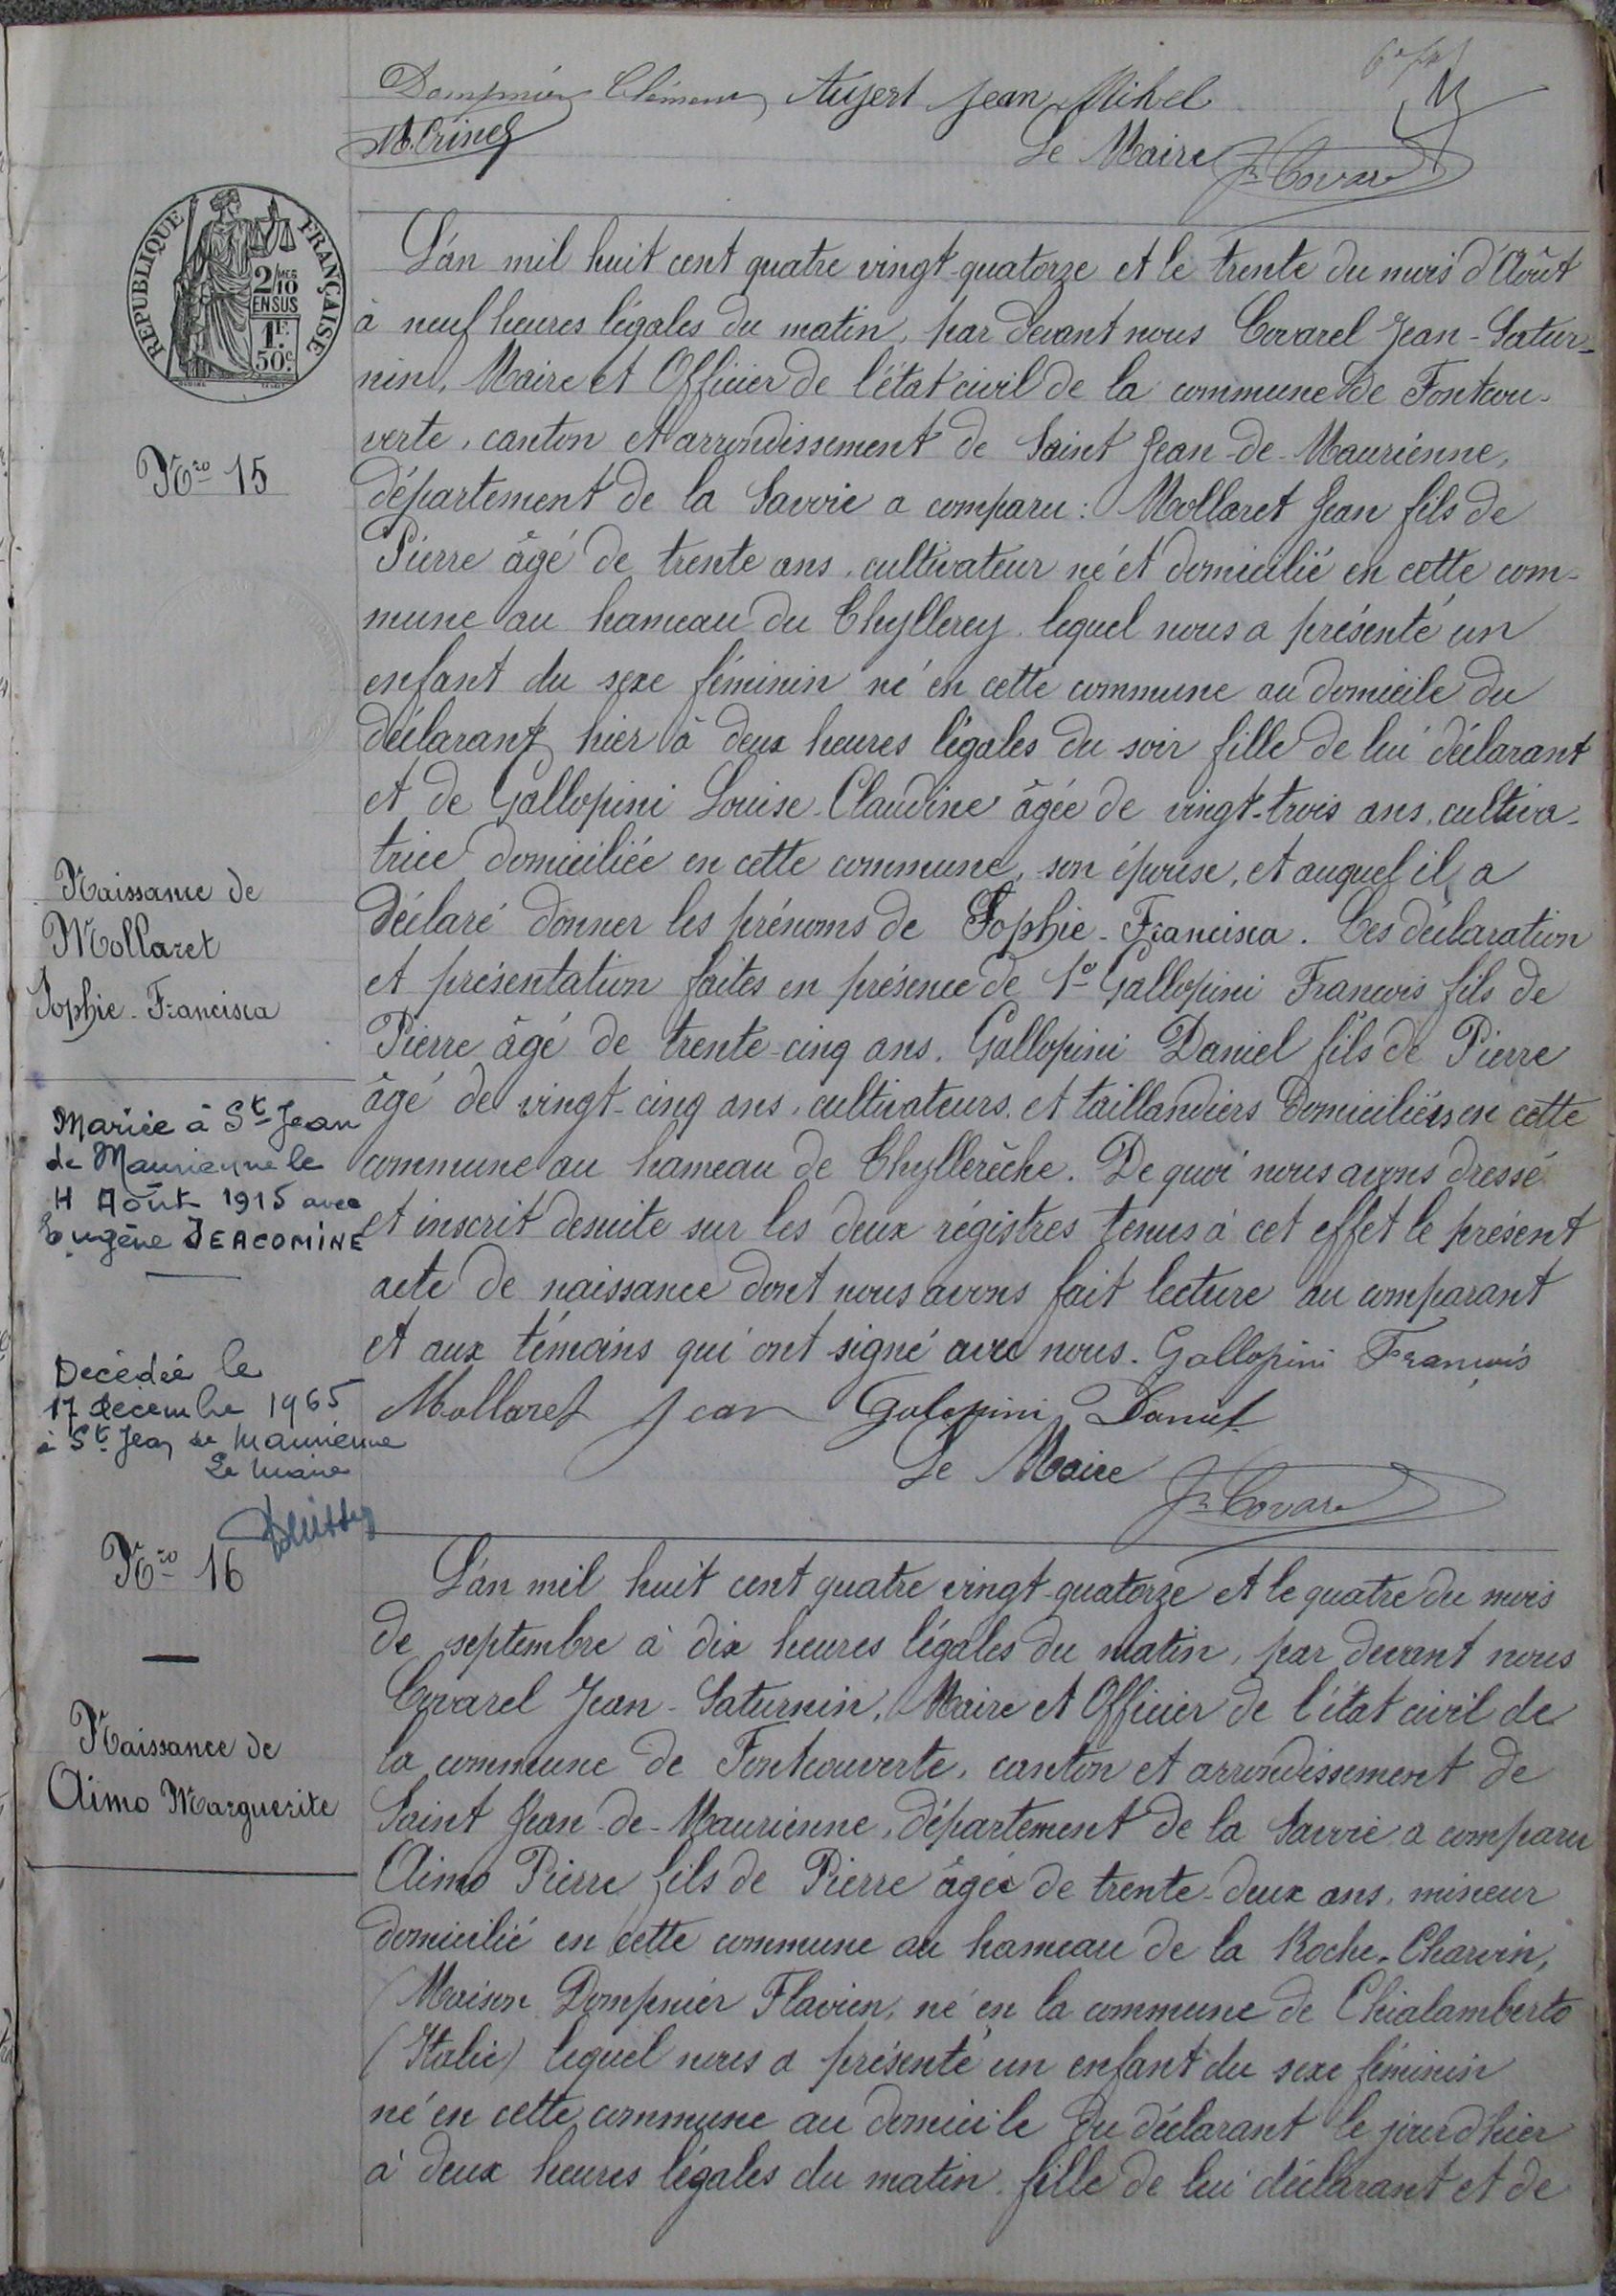 Dompnier Clément Augert Jean Mihel
Le Maire
Jn Covarel
RÉPUBLIQUE FRANÇAISE
2/10 MES
EN SUS
1F.
50c.
L'an mil huit cent quatre vingt-quatorze et le trente du mois d'Août
à neuf heures légales du matin, par devant nous Covarel Jean-Satur-
nin, Maire et Officier de l'état civil de la commune de Fontcou-
verte, canton et arrondissement de Saint Jean-de-Maurienne,
Nro 15
département de la Savoie a comparu : Mollaret Jean fils de
Pierre âgé de trente ans, cultivateur né et domicilié en cette com-
mune au hameau du Chyllerey lequel nous a présenté un
enfant du sexe féminin né en cette commune au domicile du
déclarant, hier à deux heures légales du soir fille de lui déclarant
et de Gallopini Louise-Claudine âgée de vingt-trois ans, cultiva-
trice domiciliée en cette commune, son épouse, et auquel il a
déclaré donner les prénoms de Sophie-Francisca. Ces déclaration
et présentation faites en présence de 1o Gallopini François fils de
Pierre âgé de trente-cinq ans. Gallopini Daniel fils de Pierre
âgé de vingt-cinq ans, cultivateurs et taillandiers domiciliés en cette
commune au hameau de Chyllerêche. De quoi nous avons dressé
et inscrit desuite sur les deux régistres tenus à cet effet le présent
acte de naissance dont nous avons fait lecture au comparant
et aux témoins qui ont signé avec nous. Gallopini François
Mollaret Jean Galopini Daniel
Le Maire
Jn Covarel
Naissance de
Mollaret
Sophie-Francisca
Mariée à St Jean
de Maurienne le
4 Août 1915 avec
Eugène JEACOMINE
Décédée le
17 décembre 1965
à St Jean de Maurienne
Le Maire
Nro 16
Naissance de
Aimo Marguerite
L'an mil huit cent quatre vingt-quatorze et le quatre du mois
de septembre à dix heures légales du matin, par devant nous
Covarel Jean-Saturnin, Maire et Officier de l'état civil de
la commune de Fontcouverte, canton et arrondissement de
Saint Jean-de-Maurienne, département de la Savoie a comparu
Aimo Pierre fils de Pierre âgé de trente-deux ans, mineur
domicilié en cette commune au hameau de la Roche-Charvin,
(Maison Dompnier Flavien, né en la commune de Chialamberto
(Italie) lequel nous a présenté un enfant du sexe féminin
né en cette commune au domicile du déclarant le jour d'hier
à deux heures légales du matin, fille de lui déclarant et de